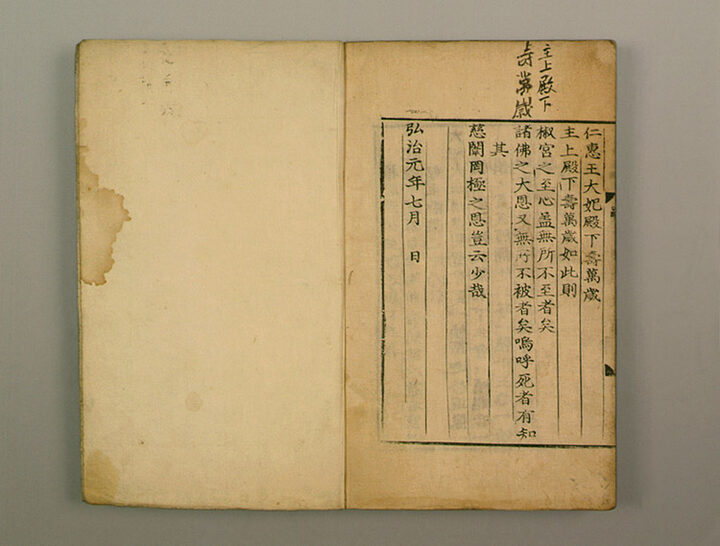 主上殿下
壽萬歲
仁惠王大妃殿下壽萬歲
主上殿下壽萬歲如此則
椒宮之至心蓋無所不至者矣
諸佛之大恩又無所不被者矣嗚呼死者有知
其
慈闈罔極之恩豈云少哉
弘治元年七月 日